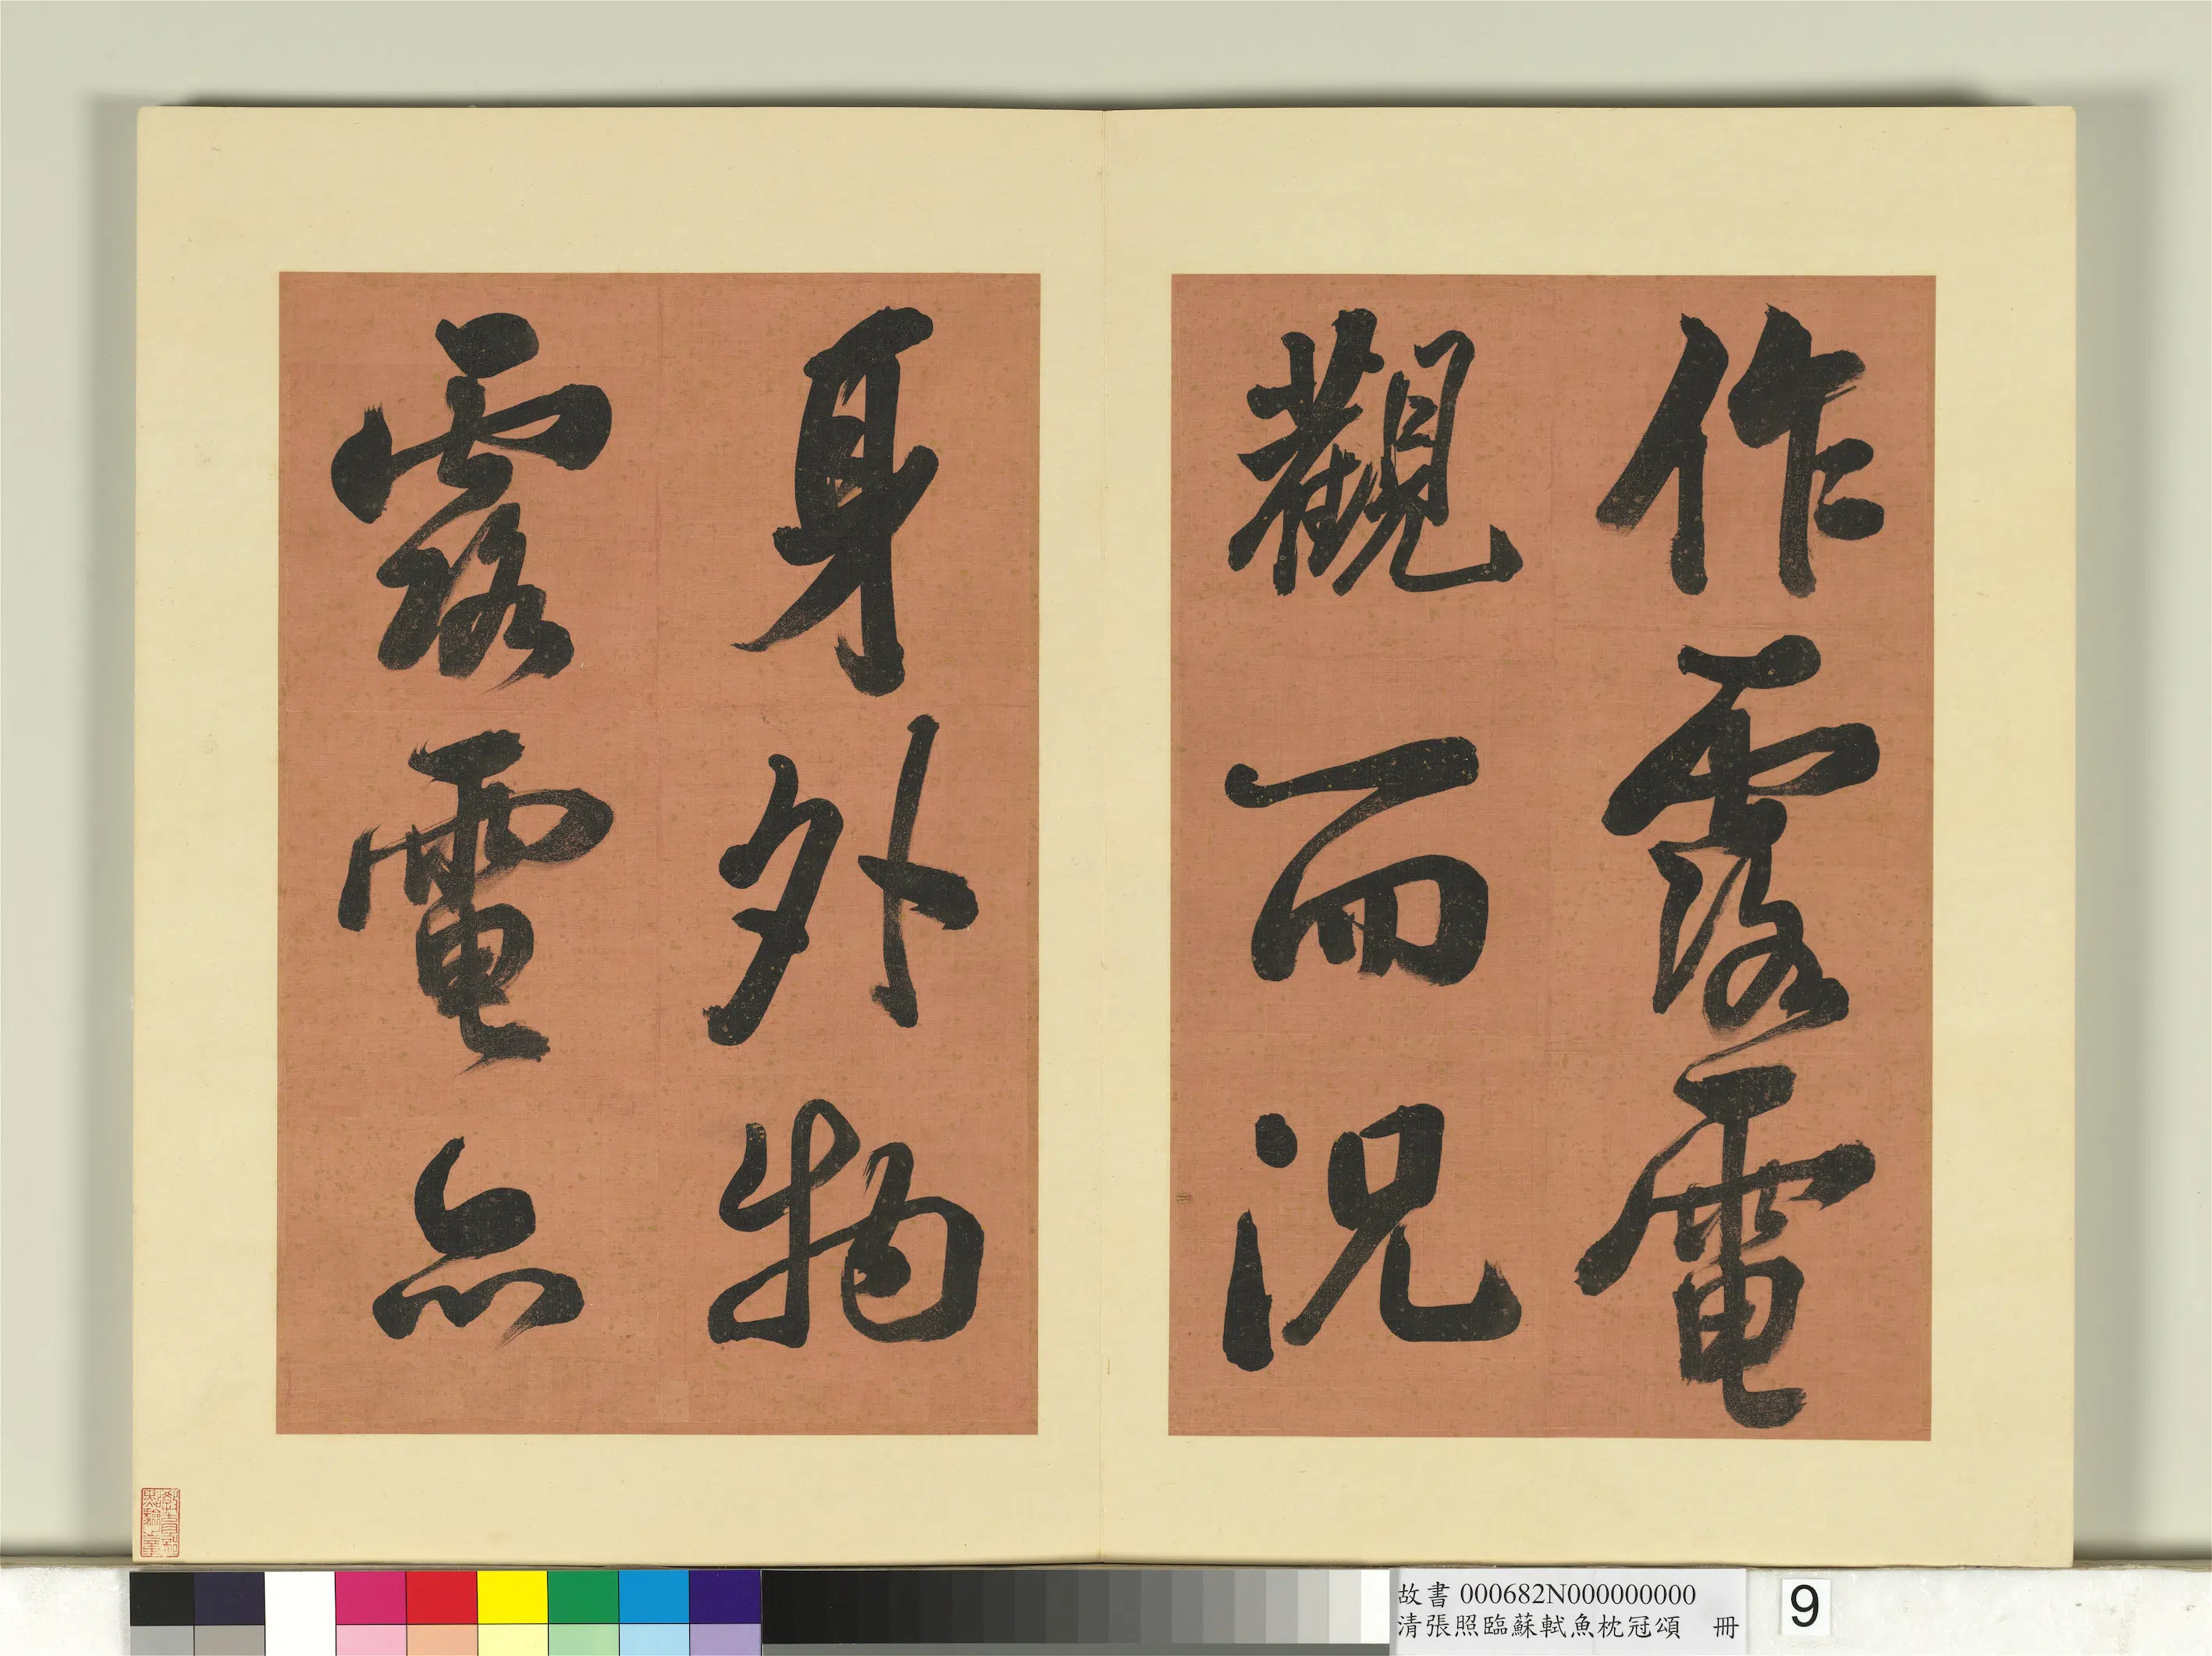 作露電
觀而況
身外物
露電亦
故書 000682N000000000
清張照臨蘇軾魚枕冠頌 冊
9